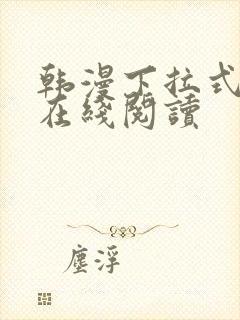 韩漫下拉式
在綫閱讀
塵浮